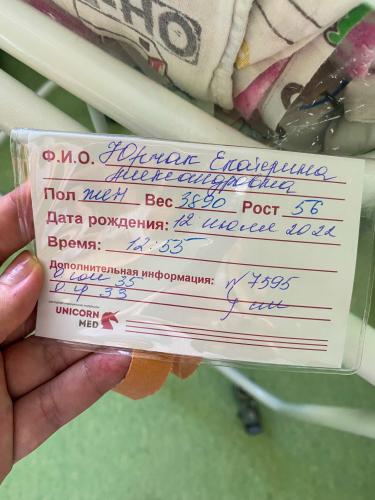 НО
Ф.И.О. Юрчак Екатерина
Александровна
Пол жен Вес 3890 Рост 56
Дата рождения: 12 июля 2022
Время: 12:55
Дополнительная информация: N 7595
О гол 35
О гр 33
UNICORN
MED